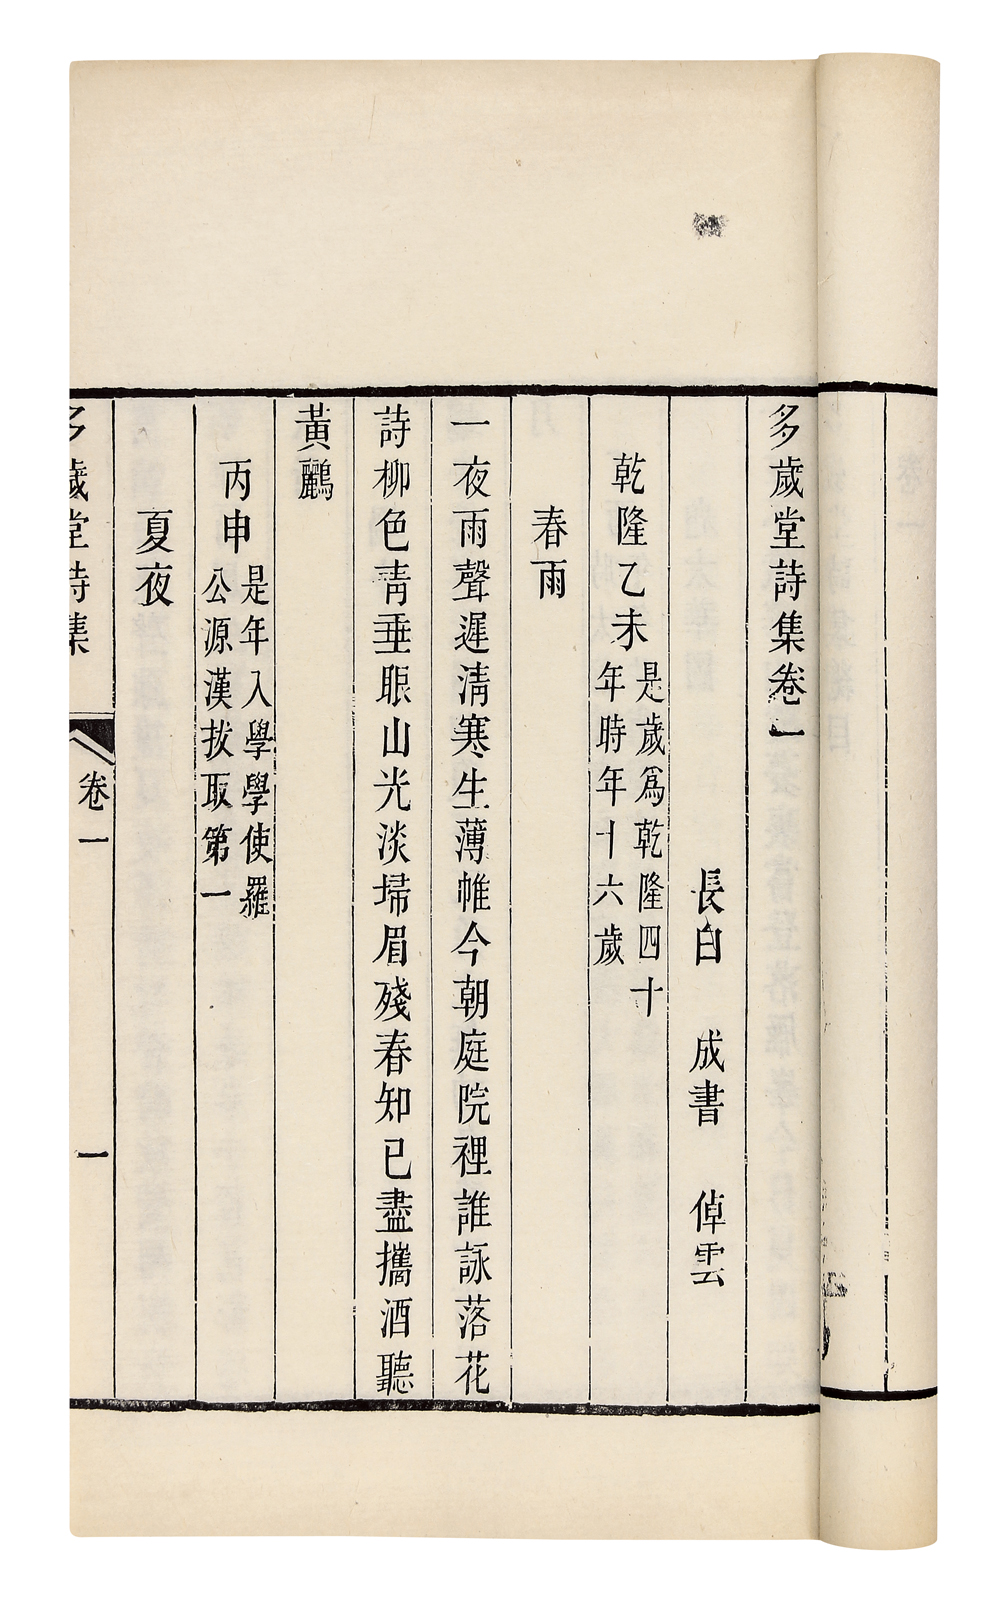 多歲堂詩集卷一
長白 成書 倬雲
乾隆乙未是歲爲乾隆四十年時年十六歲
春雨
一夜雨聲遲淸寒生薄帷今朝庭院裡誰詠落花
詩柳色靑垂眼山光淡埽眉殘春知已盡攜酒聽
黃鸝
丙申是年入學學使羅公源漢拔取第一
夏夜
多歲堂詩集 卷一 一